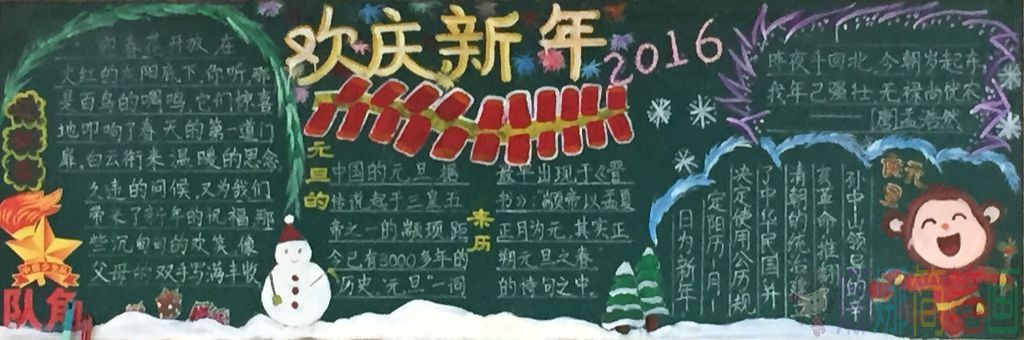 欢庆新年
2016
迎春花开放,在
火红的太阳底下,你听,那
是百鸟的鸣,它们惊喜
地叩响了春天的第一道门
扉,白云衔来温暖的思念
久违的问候,又为我们
带来了新年的祝福,那
些沉甸甸的欢笑,像
父母的双手写满丰收
队角
元旦的
来历
中国的元旦,据
传说起于三皇五
帝之一的颛顼,距
今已有3000多年的
历史,"元旦"一词
最早出现于《晋
书》:颛帝以孟夏
正月为元,其实正
朔元旦之春
的诗句之中.
昨夜斗回北,今朝岁起东
我年已强壮,无禄尚忧农
——周孟浩然
庆元旦
孙中山领导的辛
亥革命,推翻了
清朝的统治,建立
了中华民国,并
决定使用公历,规
定阳历一月一
日为新年